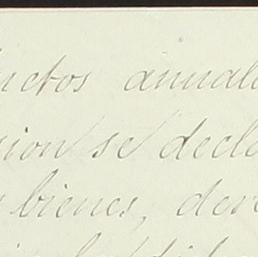 uctos anuale
sion se decla
bienes, dere